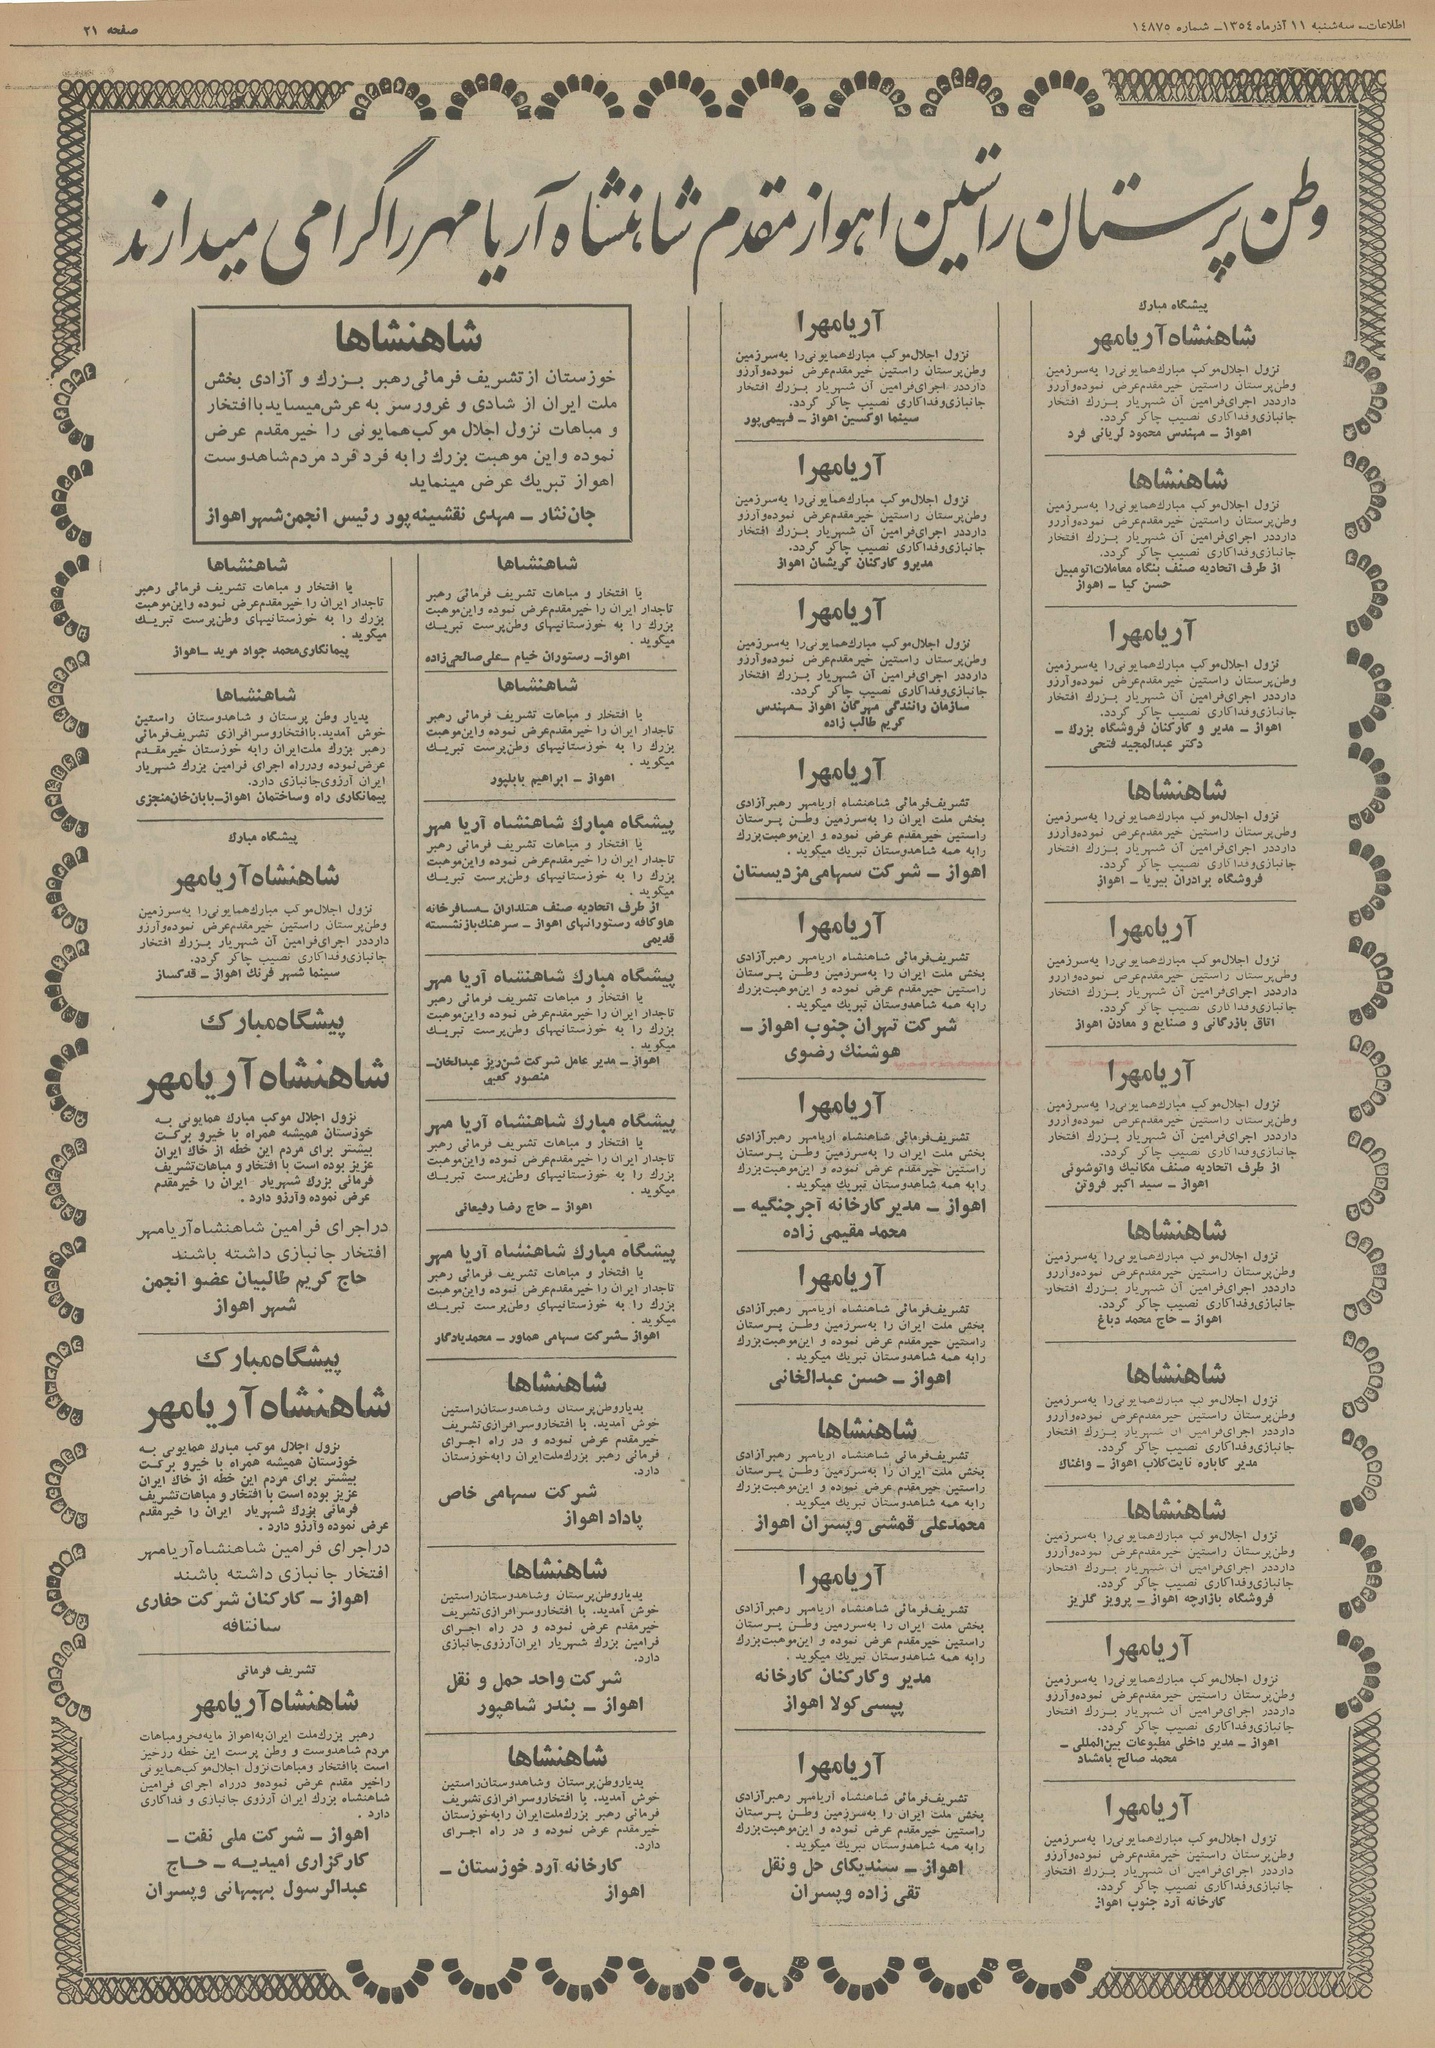 اطلاعات ـ سه‌شنبه ۱۱ آذر ماه ۱۳۵۴ ـ شماره ۱۴۸۷۵
صفحه ۲۱
وطن پرستان راستین اهواز مقدم شاهنشاه آریامهر را گرامی میدارند
پیشگاه مبارك
شاهنشاه آریامهر
نزول اجلال موکب مبارك همایونی را به سرزمین
وطن پرستان راستین خیر مقدم عرض نموده و آرزو
دارد در اجرای فرامین آن شهریار بزرك افتخار
جانبازی و فداکاری نصیب چاکر گردد.
اهواز ـ مهندس محمود لربانی فرد
شاهنشاها
نزول اجلال موکب مبارك همایونی را به سرزمین
وطن پرستان راستین خیر مقدم عرض نموده و آرزو
دارد در اجرای فرامین آن شهریار بزرك افتخار
جانبازی و فداکاری نصیب چاکر گردد.
از طرف اتحادیه صنف بنگاه معاملات اتومبیل
حسن کیا ـ اهواز
آریامهرا
نزول اجلال موکب مبارك همایونی را به سرزمین
وطن پرستان راستین خیر مقدم عرض نموده و آرزو
دارد در اجرای فرامین آن شهریار بزرك افتخار
جانبازی و فداکاری نصیب چاکر گردد.
اهواز ـ مدیر و کارکنان فروشگاه بزرك ـ
دکتر عبدالمجید فتحی
شاهنشاها
نزول اجلال موکب مبارك همایونی را به سرزمین
وطن پرستان راستین خیر مقدم عرض نموده و آرزو
دارد در اجرای فرامین آن شهریار بزرك افتخار
جانبازی و فداکاری نصیب چاکر گردد.
فروشگاه برادران بیریا ـ اهواز
آریامهرا
نزول اجلال موکب مبارك همایونی را به سرزمین
وطن پرستان راستین خیر مقدم عرض نموده و آرزو
دارد در اجرای فرامین آن شهریار بزرك افتخار
جانبازی و فداکاری نصیب چاکر گردد.
اتاق بازرگانی و صنایع و معادن اهواز
آریامهرا
نزول اجلال موکب مبارك همایونی را به سرزمین
وطن پرستان راستین خیر مقدم عرض نموده و آرزو
دارد در اجرای فرامین آن شهریار بزرك افتخار
جانبازی و فداکاری نصیب چاکر گردد.
از طرف اتحادیه صنف مکانیك و اتوشوئی
اهواز ـ سید اکبر فروتن
شاهنشاها
نزول اجلال موکب مبارك همایونی را به سرزمین
وطن پرستان راستین خیر مقدم عرض نموده و آرزو
دارد در اجرای فرامین آن شهریار بزرك افتخار
جانبازی و فداکاری نصیب چاکر گردد.
اهواز ـ حاج محمد دباغ
شاهنشاها
نزول اجلال موکب مبارك همایونی را به سرزمین
وطن پرستان راستین خیر مقدم عرض نموده و آرزو
دارد در اجرای فرامین آن شهریار بزرك افتخار
جانبازی و فداکاری نصیب چاکر گردد.
مدیر کاباره نایت کلاب اهواز ـ واغناك
شاهنشاها
نزول اجلال موکب مبارك همایونی را به سرزمین
وطن پرستان راستین خیر مقدم عرض نموده و آرزو
دارد در اجرای فرامین آن شهریار بزرك افتخار
جانبازی و فداکاری نصیب چاکر گردد.
فروشگاه بازارچه اهواز ـ پرویز گلریز
آریامهرا
نزول اجلال موکب مبارك همایونی را به سرزمین
وطن پرستان راستین خیر مقدم عرض نموده و آرزو
دارد در اجرای فرامین آن شهریار بزرك افتخار
جانبازی و فداکاری نصیب چاکر گردد.
اهواز ـ مدیر داخلی مطبوعات بین‌المللی ـ
محمد صالح بامشاد
آریامهرا
نزول اجلال موکب مبارك همایونی را به سرزمین
وطن پرستان راستین خیر مقدم عرض نموده و آرزو
دارد در اجرای فرامین آن شهریار بزرك افتخار
جانبازی و فداکاری نصیب چاکر گردد.
کارخانه آرد جنوب اهواز
آریامهرا
نزول اجلال موکب مبارك همایونی را به سرزمین
وطن پرستان راستین خیر مقدم عرض نموده و آرزو
دارد در اجرای فرامین آن شهریار بزرك افتخار
جانبازی و فداکاری نصیب چاکر گردد.
سینما اوکسین اهواز ـ فهیمی پور
آریامهرا
نزول اجلال موکب مبارك همایونی را به سرزمین
وطن پرستان راستین خیر مقدم عرض نموده و آرزو
دارد در اجرای فرامین آن شهریار بزرك افتخار
جانبازی و فداکاری نصیب چاکر گردد.
مدیر و کارکنان کریشان اهواز
آریامهرا
نزول اجلال موکب مبارك همایونی را به سرزمین
وطن پرستان راستین خیر مقدم عرض نموده و آرزو
دارد در اجرای فرامین آن شهریار بزرك افتخار
جانبازی و فداکاری نصیب چاکر گردد.
سازمان رانندگی مهرگان اهواز ـ مهندس
کریم طالب زاده
آریامهرا
تشریف فرمائی شاهنشاه آریامهر رهبر آزادی
بخش ملت ایران را به سرزمین وطن پرستان
راستین خیر مقدم عرض نموده و این موهبت بزرك
را به همه شاهدوستان تبریك میگوید .
اهواز ـ شرکت سهامی مزدیستان
آریامهرا
تشریف فرمائی شاهنشاه آریامهر رهبر آزادی
بخش ملت ایران را به سرزمین وطن پرستان
راستین خیر مقدم عرض نموده و این موهبت بزرك
را به همه شاهدوستان تبریك میگوید .
شرکت تهران جنوب اهواز ـ
هوشنك رضوی
آریامهرا
تشریف فرمائی شاهنشاه آریامهر رهبر آزادی
بخش ملت ایران را به سرزمین وطن پرستان
راستین خیر مقدم عرض نموده و این موهبت بزرك
را به همه شاهدوستان تبریك میگوید .
اهواز ـ مدیر کارخانه آجر جنگیه ـ
محمد مقیمی زاده
آریامهرا
تشریف فرمائی شاهنشاه آریامهر رهبر آزادی
بخش ملت ایران را به سرزمین وطن پرستان
راستین خیر مقدم عرض نموده و این موهبت بزرك
را به همه شاهدوستان تبریك میگوید .
اهواز ـ حسن عبدالخانی
شاهنشاها
تشریف فرمائی شاهنشاه آریامهر رهبر آزادی
بخش ملت ایران را به سرزمین وطن پرستان
راستین خیر مقدم عرض نموده و این موهبت بزرك
را به همه شاهدوستان تبریك میگوید .
محمدعلی قمشی و پسران اهواز
آریامهرا
تشریف فرمائی شاهنشاه آریامهر رهبر آزادی
بخش ملت ایران را به سرزمین وطن پرستان
راستین خیر مقدم عرض نموده و این موهبت بزرك
را به همه شاهدوستان تبریك میگوید .
مدیر و کارکنان کارخانه
پپسی کولا اهواز
آریامهرا
تشریف فرمائی شاهنشاه آریامهر رهبر آزادی
بخش ملت ایران را به سرزمین وطن پرستان
راستین خیر مقدم عرض نموده و این موهبت بزرك
را به همه شاهدوستان تبریك میگوید .
اهواز ـ سندیکای حل و نقل
تقی زاده و پسران
شاهنشاها
خوزستان از تشریف فرمائی رهبر بزرك و آزادی بخش
ملت ایران از شادی و غرور سر به عرش میساید با افتخار
و مباهات نزول اجلال موکب همایونی را خیر مقدم عرض
نموده و این موهبت بزرك را به فرد فرد مردم شاهدوست
اهواز تبریك عرض مینماید
جان نثار ـ مهدی نقشینه پور رئیس انجمن شهر اهواز
شاهنشاها
با افتخار و مباهات تشریف فرمائی رهبر
تاجدار ایران را خیر مقدم عرض نموده و این موهبت
بزرك را به خوزستانیهای وطن پرست تبریك
میگوید .
اهواز ـ رستوران خیام ـ علی صالحی زاده
شاهنشاها
با افتخار و مباهات تشریف فرمائی رهبر
تاجدار ایران را خیر مقدم عرض نموده و این موهبت
بزرك را به خوزستانیهای وطن پرست تبریك
میگوید .
اهواز ـ ابراهیم بابلپور
پیشگاه مبارك شاهنشاه آریا مهر
با افتخار و مباهات تشریف فرمائی رهبر
تاجدار ایران را خیر مقدم عرض نموده و این موهبت
بزرك را به خوزستانیهای وطن پرست تبریك
میگوید .
از طرف اتحادیه صنف هتلداران ـ مسافرخانه
ها و کافه رستورانهای اهواز ـ سرهنك بازنشسته
قدیمی
پیشگاه مبارك شاهنشاه آریا مهر
با افتخار و مباهات تشریف فرمائی رهبر
تاجدار ایران را خیر مقدم عرض نموده و این موهبت
بزرك را به خوزستانیهای وطن پرست تبریك
میگوید .
اهواز ـ مدیر عامل شرکت شن ریز عبدالخان ـ
منصور کعبی
پیشگاه مبارك شاهنشاه آریا مهر
با افتخار و مباهات تشریف فرمائی رهبر
تاجدار ایران را خیر مقدم عرض نموده و این موهبت
بزرك را به خوزستانیهای وطن پرست تبریك
میگوید .
اهواز ـ حاج رضا رفیعائی
پیشگاه مبارك شاهنشاه آریا مهر
با افتخار و مباهات تشریف فرمائی رهبر
تاجدار ایران را خیر مقدم عرض نموده و این موهبت
بزرك را به خوزستانیهای وطن پرست تبریك
میگوید .
اهواز ـ شرکت سهامی هماور ـ محمد یادگار
شاهنشاها
بدیار وطن پرستان و شاهدوستان راستین
خوش آمدید. با افتخار و سرافرازی تشریف
خیر مقدم عرض نموده و در راه اجرای
فرمائی رهبر بزرك ملت ایران را به خوزستان
دارد.
شرکت سهامی خاص
پاداد اهواز
شاهنشاها
بدیار وطن پرستان و شاهدوستان راستین
خوش آمدید. با افتخار و سرافرازی تشریف
خیر مقدم عرض نموده و در راه اجرای
فرامین بزرك شهریار ایران آرزوی جانبازی
دارد.
شرکت واحد حمل و نقل
اهواز ـ بندر شاهپور
شاهنشاها
بدیار وطن پرستان و شاهدوستان راستین
خوش آمدید. با افتخار و سرافرازی تشریف
فرمائی رهبر بزرك ملت ایران را به خوزستان
خیر مقدم عرض نموده و در راه اجرای
دارد.
کارخانه آرد خوزستان ـ
اهواز
شاهنشاها
با افتخار و مباهات تشریف فرمائی رهبر
تاجدار ایران را خیر مقدم عرض نموده و این موهبت
بزرك را به خوزستانیهای وطن پرست تبریك
میگوید .
پیمانکاری محمد جواد مرید ـ اهواز
شاهنشاها
بدیار وطن پرستان و شاهدوستان راستین
خوش آمدید. با افتخار و سرافرازی تشریف فرمائی
رهبر بزرك ملت ایران را به خوزستان خیر مقدم
عرض نموده و در راه اجرای فرامین بزرك شهریار
ایران آرزوی جانبازی دارد.
پیمانکاری راه و ساختمان اهواز ـ بابان خان منجزی
پیشگاه مبارك
شاهنشاه آریامهر
نزول اجلال موکب مبارك همایونی را به سرزمین
وطن پرستان راستین خیر مقدم عرض نموده و آرزو
دارد در اجرای فرامین آن شهریار بزرك افتخار
جانبازی و فداکاری نصیب چاکر گردد.
سینما شهر فرنك اهواز ـ قدکساز
پیشگاه مبارك
شاهنشاه آریامهر
نزول اجلال موکب مبارك همایونی به
خوزستان همیشه همراه با خیر و برکت
بیشتر برای مردم این خطه از خاك ایران
عزیز بوده است با افتخار و مباهات تشریف
فرمائی بزرك شهریار ایران را خیر مقدم
عرض نموده و آرزو دارد .
در اجرای فرامین شاهنشاه آریامهر
افتخار جانبازی داشته باشند
حاج کریم طالبیان عضو انجمن
شهر اهواز
پیشگاه مبارك
شاهنشاه آریامهر
نزول اجلال موکب مبارك همایونی به
خوزستان همیشه همراه با خیر و برکت
بیشتر برای مردم این خطه از خاك ایران
عزیز بوده است با افتخار و مباهات تشریف
فرمائی بزرك شهریار ایران را خیر مقدم
عرض نموده و آرزو دارد .
در اجرای فرامین شاهنشاه آریامهر
افتخار جانبازی داشته باشند
اهواز ـ کارکنان شرکت حفاری
سانتافه
تشریف فرمائی
شاهنشاه آریامهر
رهبر بزرك ملت ایران به اهواز مایه فخر و مباهات
مردم شاهدوست و وطن پرست این خطه زرخیز
است با افتخار و مباهات نزول اجلال موکب همایونی
را خیر مقدم عرض نموده و در راه اجرای فرامین
شاهنشاه بزرك ایران آرزوی جانبازی و فداکاری
دارد .
اهواز ـ شرکت ملی نفت ـ
کارگزاری امیدیه ـ حاج
عبدالرسول بهبهانی و پسران